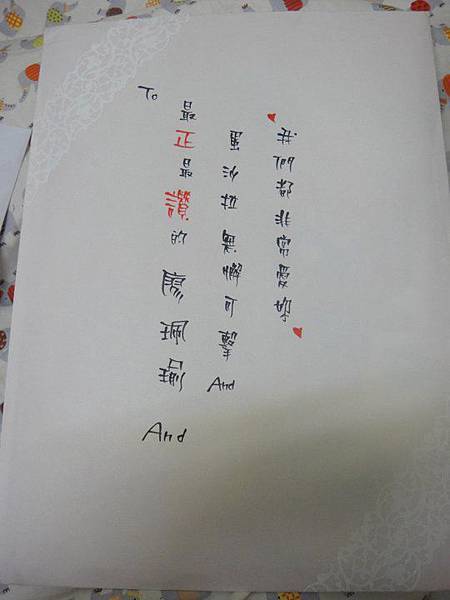 To
最正最讚的廖珮瑜 And
蛋沙拉無懈可擊 And
我們都非常愛妳